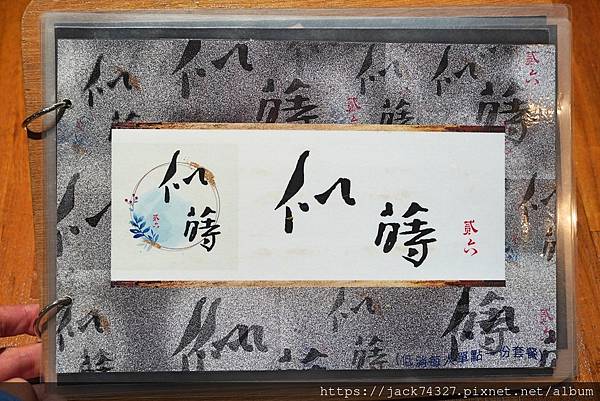 似蒔
貳六
似蒔
貳六
(低消每人單點一份套餐)
https://jack74327.pixnet.net/album